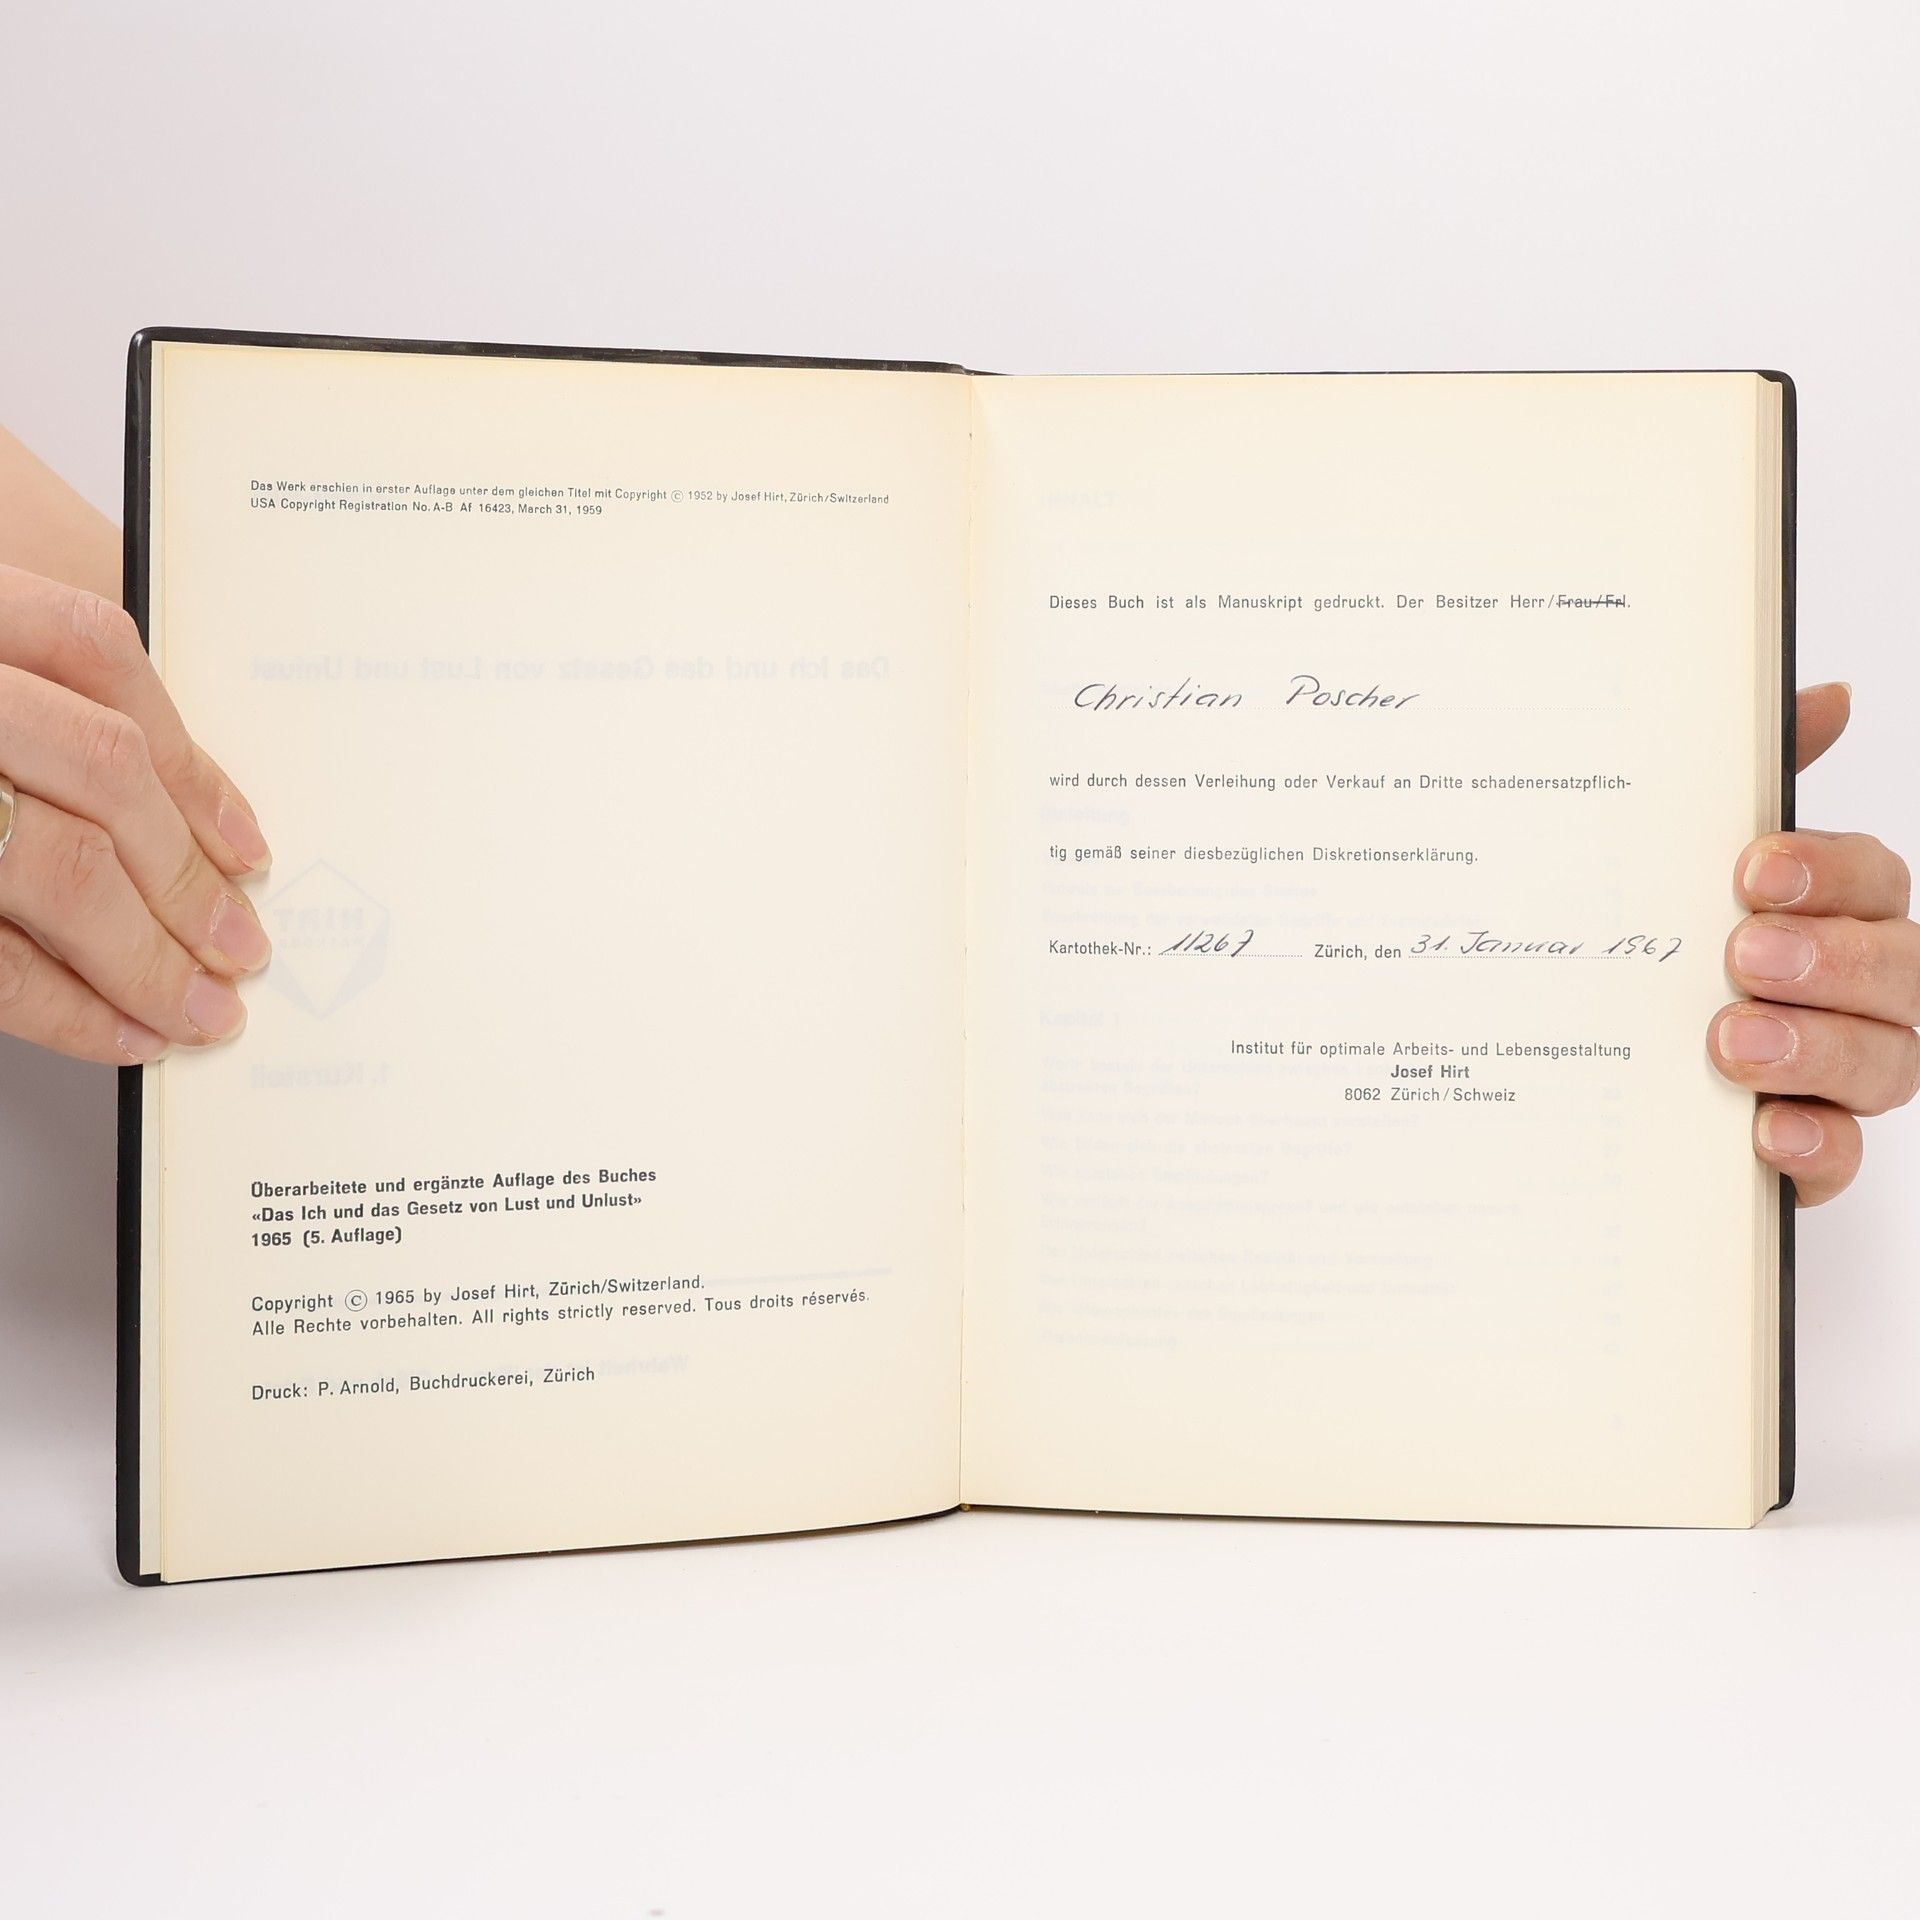 Das Werk erschien in erster Auflage unter dem gleichen Titel mit Copyright © 1952 by Josef Hirt, Zürich/Switzerland
USA Copyright Registration No. A-B Af 16423, March 31, 1959
Das Ich und das Gesetz von Lust und Unlust
HIRT
1. Kursteil
Überarbeitete und ergänzte Auflage des Buches
«Das Ich und das Gesetz von Lust und Unlust»
1965 (5. Auflage)
Copyright © 1965 by Josef Hirt, Zürich/Switzerland.
Alle Rechte vorbehalten. All rights strictly reserved. Tous droits réservés.
Druck: P. Arnold, Buchdruckerei, Zürich
Dieses Buch ist als Manuskript gedruckt. Der Besitzer Herr/Frau/Frl.
Christian Poscher
wird durch dessen Verleihung oder Verkauf an Dritte schadenersatzpflich-
tig gemäß seiner diesbezüglichen Diskretionserklärung.
Kartothek-Nr.: 11267 Zürich, den 31. Januar 1967
Institut für optimale Arbeits- und Lebensgestaltung
Josef Hirt
8062 Zürich/Schweiz